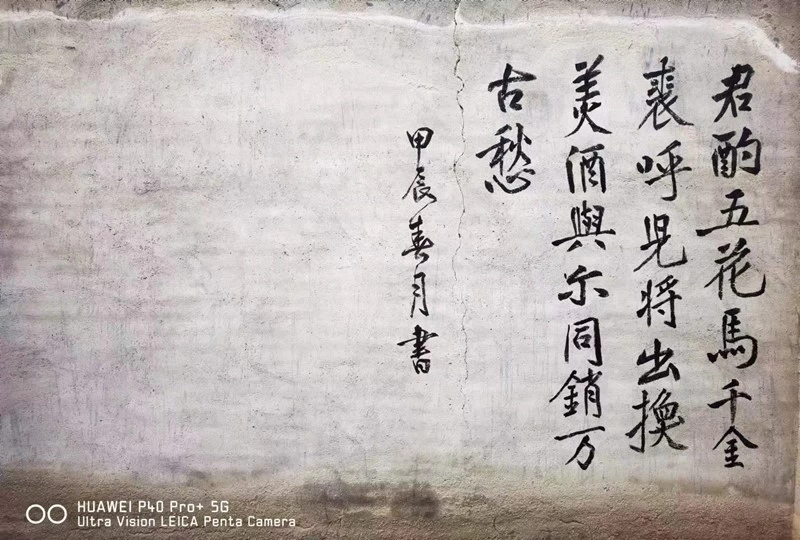 君酌五花馬千金
裘呼児将出換
美酒與尓同銷万
古愁
甲辰春月書
HUAWEI P40 Pro+ 5G
Ultra Vision LEICA Penta Camera